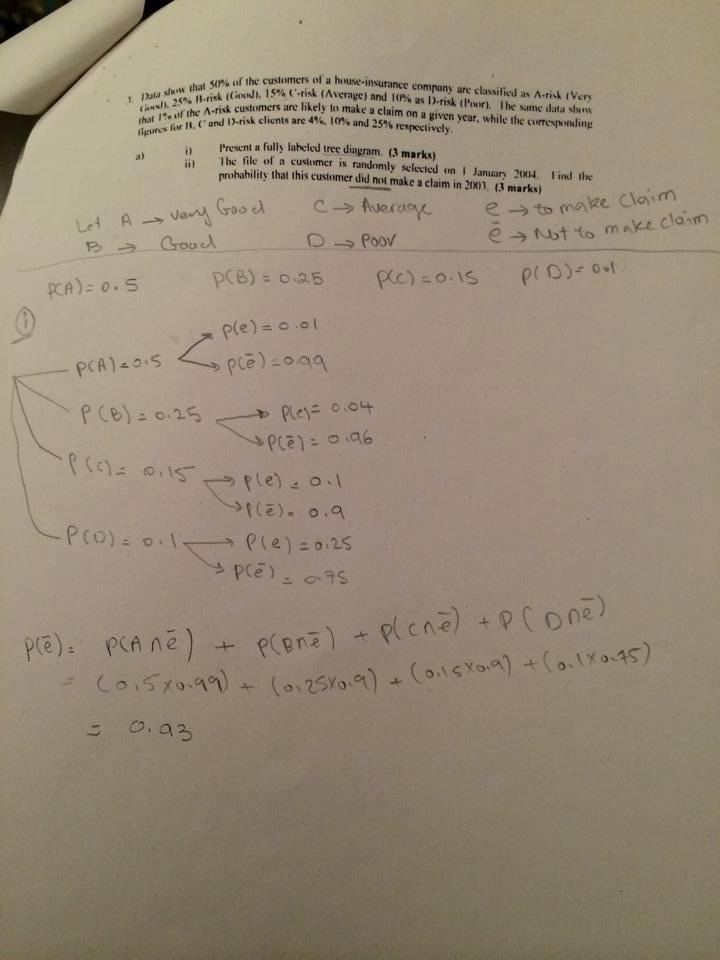 1. Data show that 50% of the customers of a house-insurance company are classified as A-risk (Very
Good), 25% B-risk (Good), 15% C-risk (Average) and 10% as D-risk (Poor). The same data show
that 1% of the A-risk customers are likely to make a claim on a given year, while the corresponding
figures for B, C and D-risk clients are 4%, 10% and 25% respectively.
a) i) Present a fully labeled tree diagram. (3 marks)
ii) The file of a customer is randomly selected on 1 January 2004. Find the
probability that this customer did not make a claim in 2003. (3 marks)
Let A → Very Good C → Average e → to make claim
B → Good D → Poor ē → Not to make claim
P(A) = 0.5 P(B) = 0.25 P(C) = 0.15 P(D) = 0.1
i
P(e) = 0.01
P(A) = 0.5
P(ē) = 0.99
P(B) = 0.25 P(e) = 0.04
P(ē) = 0.96
P(C) = 0.15 P(e) = 0.1
P(ē) = 0.9
P(D) = 0.1 P(e) = 0.25
P(ē) = 0.75
P(ē) = P(A∩ē) + P(B∩ē) + P(C∩ē) + P(D∩ē)
= (0.5x0.99) + (0.25x0.9) + (0.15x0.9) + (0.1x0.75)
= 0.93